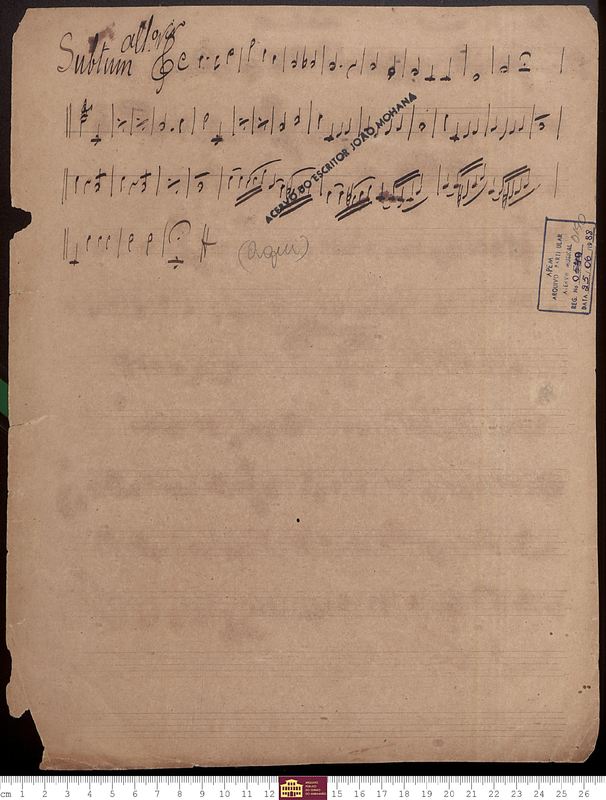 Subtum allº
ACERVO DO ESCRITOR JOÃO MOHANA
(aqui)
APEM
ARQUIVO PARTICULAR
ACERVO MUSICAL
REG. No
DATA 25 06 1988
cm 1 2 3 4 5 6 7 8 9 10 11 12 15 16 17 18 19 20 21 22 23 24 25 26
ARQUIVO
PÚBLICO
DO ESTADO
DO MARANHÃO